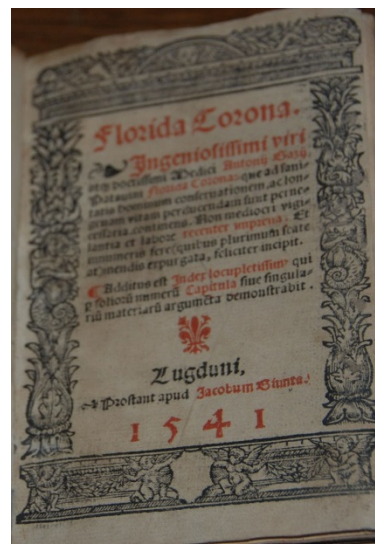 Florida Corona.
Ingeniosissimi viri
atqȝ doctissimi Medici Antonij Gazij,
Patauini Florida Corona: que ad sani⸗
tatis hominum conseruationem, ac lon⸗
geuam vitam perducendam sunt perne⸗
cessaria continens. Non mediocri vigi⸗
lantia et labore recenter impressa. Et
innumeris fere, quibus plurimum scate⸗
at, mendis expurgata, feliciter incipit.
¶ Additus est Index locupletissimꝰ qui
ꝑ folioꝝ numerũ Capitula siue singula⸗
riũ materiarũ argumẽta demonstrabit.
Lugduni,
Prostant apud Jacobum Giunta.
1541